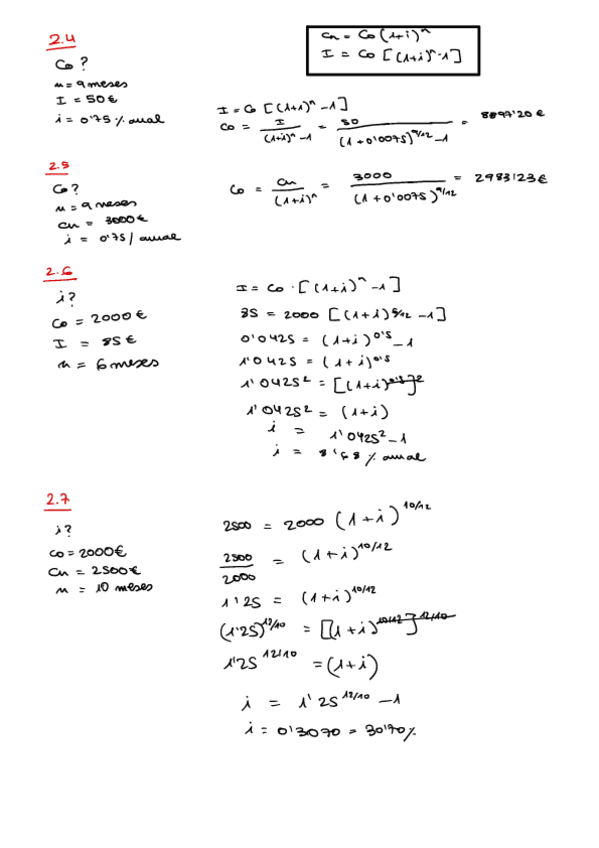 2.4
Co?
n = 9 meses
I = 50€
i = 0'75% anual
Cn = Co (1+i)^n
I = Co [(1+i)^n - 1]
I = Co [(1+i)^n - 1]
Co = I / ((1+i)^n - 1) = 50 / ((1+0'0075)^9/12 - 1) = 8897'20€
2.5
Co?
n = 9 meses
Cn = 3000€
i = 0'75/ anual
Co = Cn / (1+i)^n = 3000 / (1+0'0075)^9/12 = 2983'23€
2.6
i?
Co = 2000€
I = 85€
n = 6 meses
I = Co · [(1+i)^n - 1]
85 = 2000 [(1+i)^6/12 - 1]
0'0425 = (1+i)^0'5 - 1
1'0425 = (1+i)^0'5
1'0425^2 = [(1+i)^0'5]^2
1'0425^2 = (1+i)
i = 1'0425^2 - 1
i = 8'68% anual
2.7
i?
Co = 2000€
Cn = 2500€
n = 10 meses
2500 = 2000 (1+i)^10/12
2500 / 2000 = (1+i)^10/12
1'25 = (1+i)^10/12
(1'25)^12/10 = [(1+i)^10/12]^12/10
1'25^12/10 = (1+i)
i = 1'25^12/10 - 1
i = 0'3070 = 30'70%